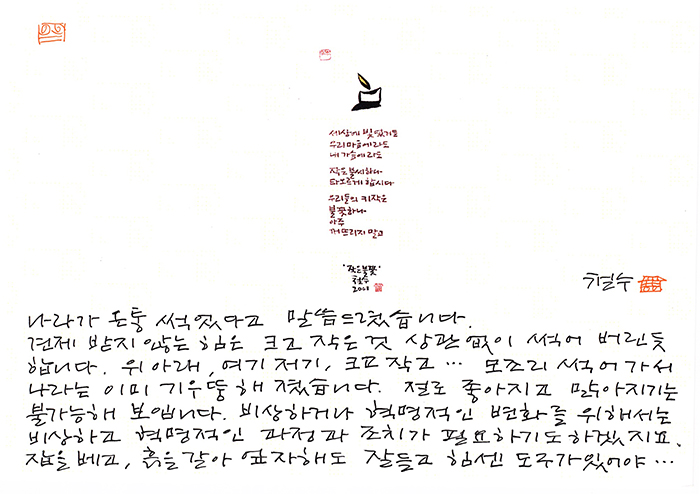 세상에 빛 없거든
우리 마음에라도
내 가슴에라도
작은 불씨 하나
타오르게 합시다
우리들의 키 작은
불꽃 하나
아주
꺼뜨리지 말고
'작은 불꽃'
철수
2001
철수
나라가 온통 썩었다고 말씀드렸습니다.
견제 받지 않는 힘은 크고 작은 것 상관없이 썩어 버린듯
합니다. 위 아래, 여기 저기, 크고 작고 … 모조리 썩어가서
나라는 이미 기우뚱 해 졌습니다. 절로 좋아지고 맑아지기는
불가능해 보입니다. 비상하거나 혁명적인 변화를 위해서는
비상하고 혁명적인 과정과 조치가 필요하기도 하겠지요.
잡을 베고, 흙을 갈아 엎자해도 잘들고 힘센 도구가 있어야 …